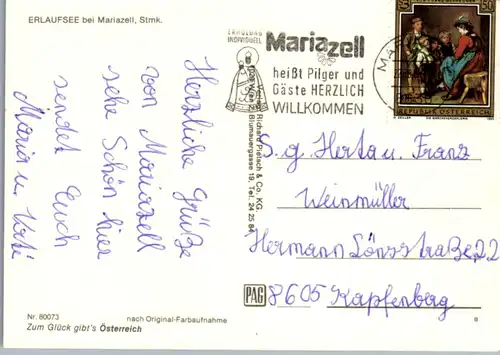 ERLAUFSEE bei Mariazell, Stmk.
Herzliche Grüße
von Mariazell
sehr Schön hier
sendet Euch
Maria u. Kati
ERHOLUNG
INDIVIDUELL
Mariazell
heißt Pilger und
Gäste HERZLICH
WILLKOMMEN
REPUBLIK ÖSTERREICH
S. g. Herta u. Franz
Weinmüller
Hermann Lönsstraße 22
8605 Kapfenberg
Richard Pietsch & Co. KG.
Blumauergasse 19, Tel. 24 25 84
PAG
Nr. 80073
nach Original-Farbaufnahme
Zum Glück gibt's Österreich